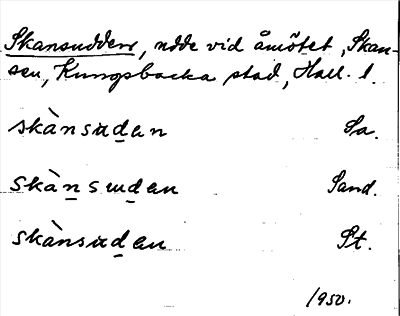 Skansudden, udde vid åmötet, Skan-
sen, Kungsbacka stad, Hall. l.
skànsud̲an Sa.
skàn̲sud̲an Sand.
skànsud̲an St.
1950.